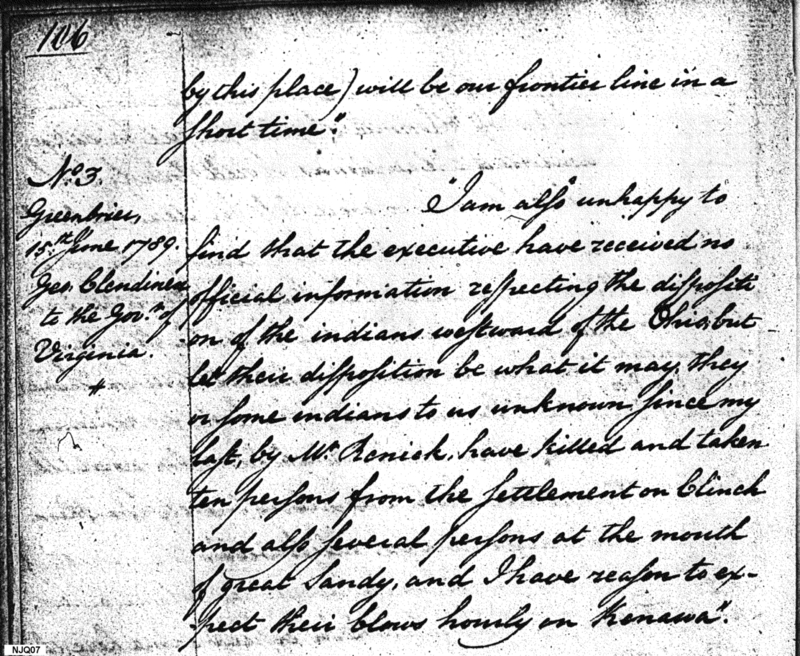 106
by this place) will be our frontier line in a
short time."
No. 3.
Greenbrier,
15.th June 1789.
Geo. Clendinen
to the Gov.r of
Virginia.
#
"I am also unhappy to
find that the executive have received no
official information respecting the dispositi
on of the indians westward of the Ohio, but
let their disposition be what it may, they
or some indians to us unknown since my
last, by Mr. Renick, have killed and taken
ten persons from the settlement on Clinch
and also several persons at the mouth
of great Sandy, and I have reason to ex-
pect their blows hourly on Kenawa".
NJQ07